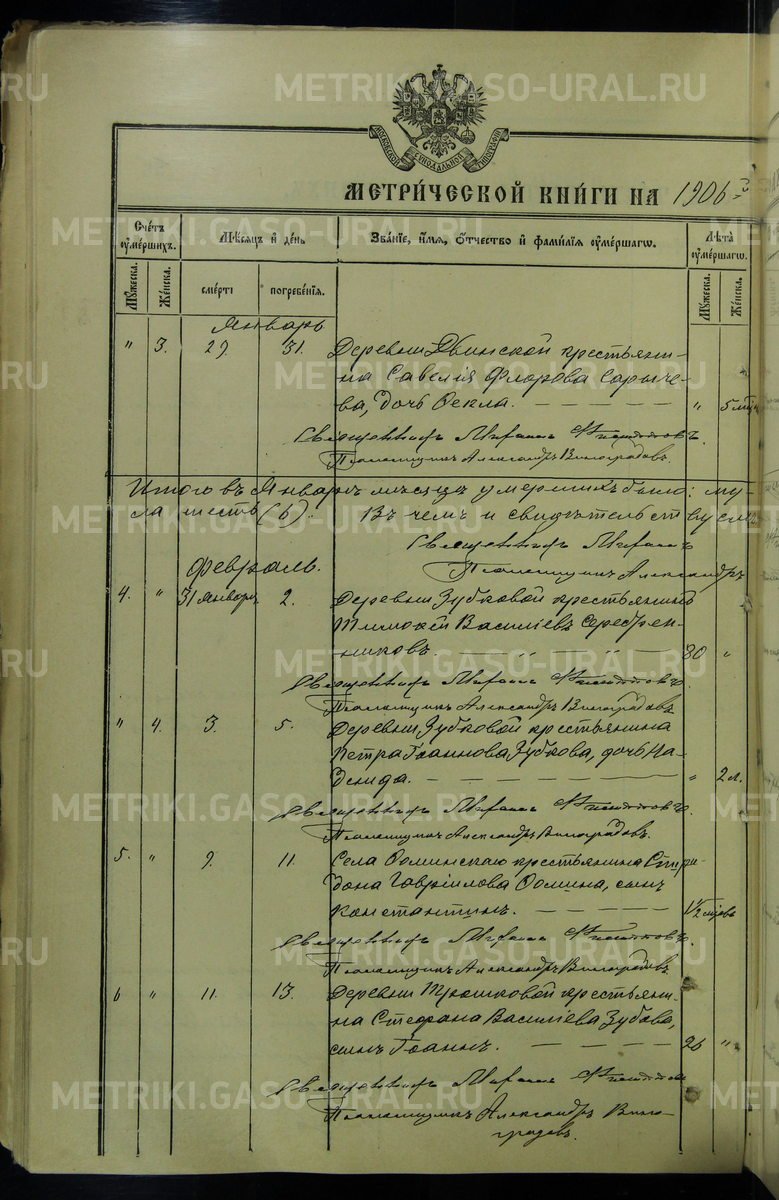 METRIKI.GASO-URAL.RU
МОСКОВСКОЙ СѴНОДАЛЬНОЙ ТИПОГРАФІИ
МЕТРИ́ЧЕСКОЙ КНИ́ГИ НА 1906й
Сче́тъ ᲂу҆ме́ршихъ.
Мꙋ́жеска.
Же́нска.
Мѣ́сѧцъ и҆ де́нь
сме́рти
погребе́нїѧ.
Зва́нїе, и҆́мѧ, ѻ҆́тчество и҆ фами́лїѧ ᲂу҆ме́ршагѡ.
Лѣ́та ᲂу҆ме́ршагѡ.
Мꙋ́жеска.
Же́нска.
Январь
" 3. 29. 31. Деревни Двинской крестьяни-
на Савелія Флорова Сарыче-
ва, дочь Ѳекла. — — — — " 5 мѣс
Священникъ Михаилъ
Псаломщикъ Александръ Виноградовъ.
Итого въ Январѣ мѣсяцѣ умершихъ было: му-
ла шесть (6). Въ чемъ и свидѣтельству
Священникъ Михаилъ
Псаломщикъ Александръ
Февраль.
4. " 31 Января 2. Деревни Зубковой крестьянинъ
Тимоѳей Василіевъ Серебрен-
никовъ. — " — " — 80 "
Священникъ Михаилъ
Псаломщикъ Александръ Виноградовъ
" 4. 3. 5. Деревни Зубковой крестьянина
Петра Іоаннова Зубкова, дочь На-
дежда. — — — — " 2 л.
Священникъ Михаилъ
Псаломщикъ Александръ Виноградовъ.
5. " 9. 11. Села Ѳоминскаго крестьянина Спири-
дона Гавріилова Ѳомина, сынъ
Константинъ. — — — — 1½ мѣсяцъ
Священникъ Михаилъ
Псаломщикъ Александръ Виноградовъ
6 " 11. 13. Деревни Трошковой крестьяни-
на Стефана Василіева Зубова,
сынъ Іоаннъ. — — — — 26 "
Священникъ Михаилъ
Псаломщикъ Александръ Вино-
градовъ.